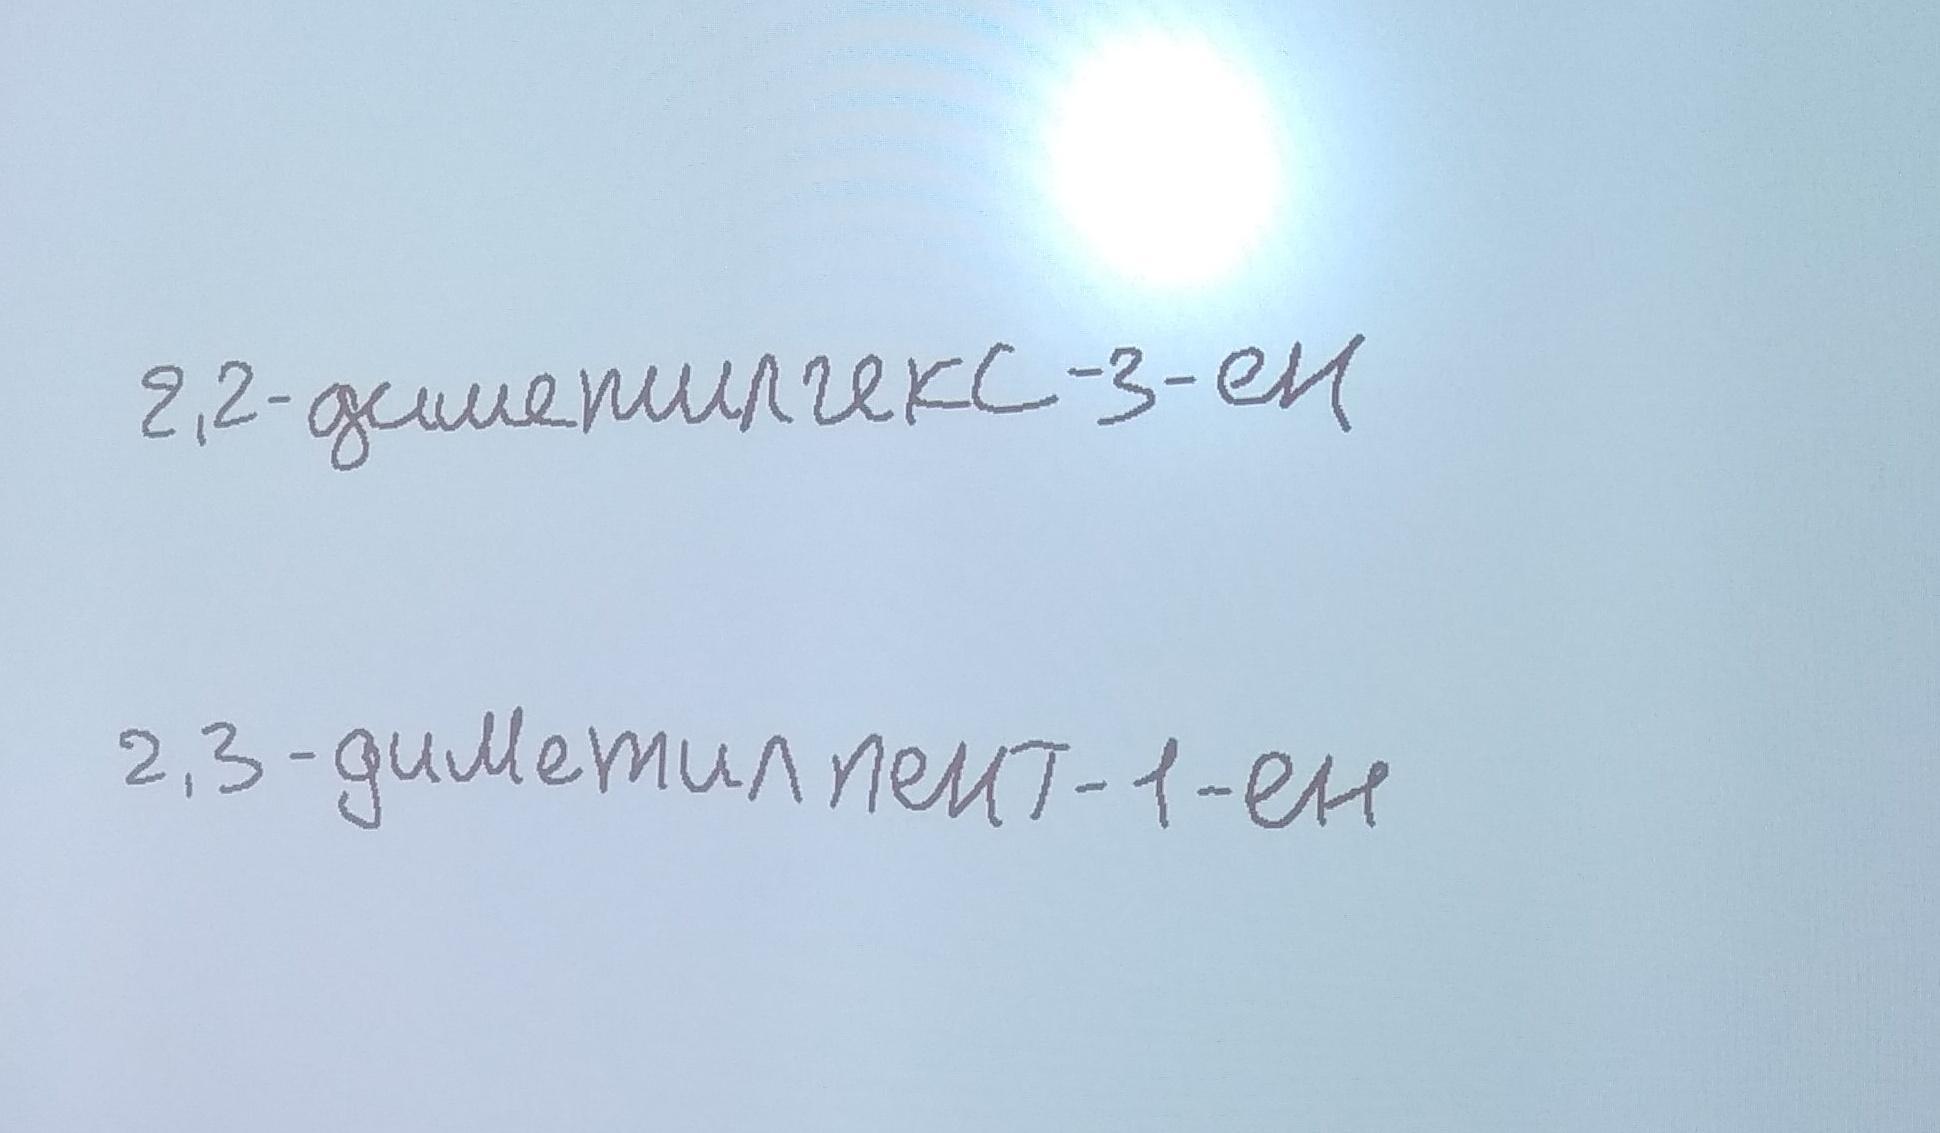 2,2-диметилгекс-3-ен
2,3-диметилпент-1-ен